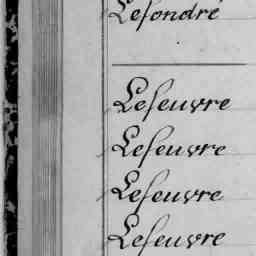 Lefondré
Lefeuvre
Lefeuvre
Lefeuvre
Lefeuvre